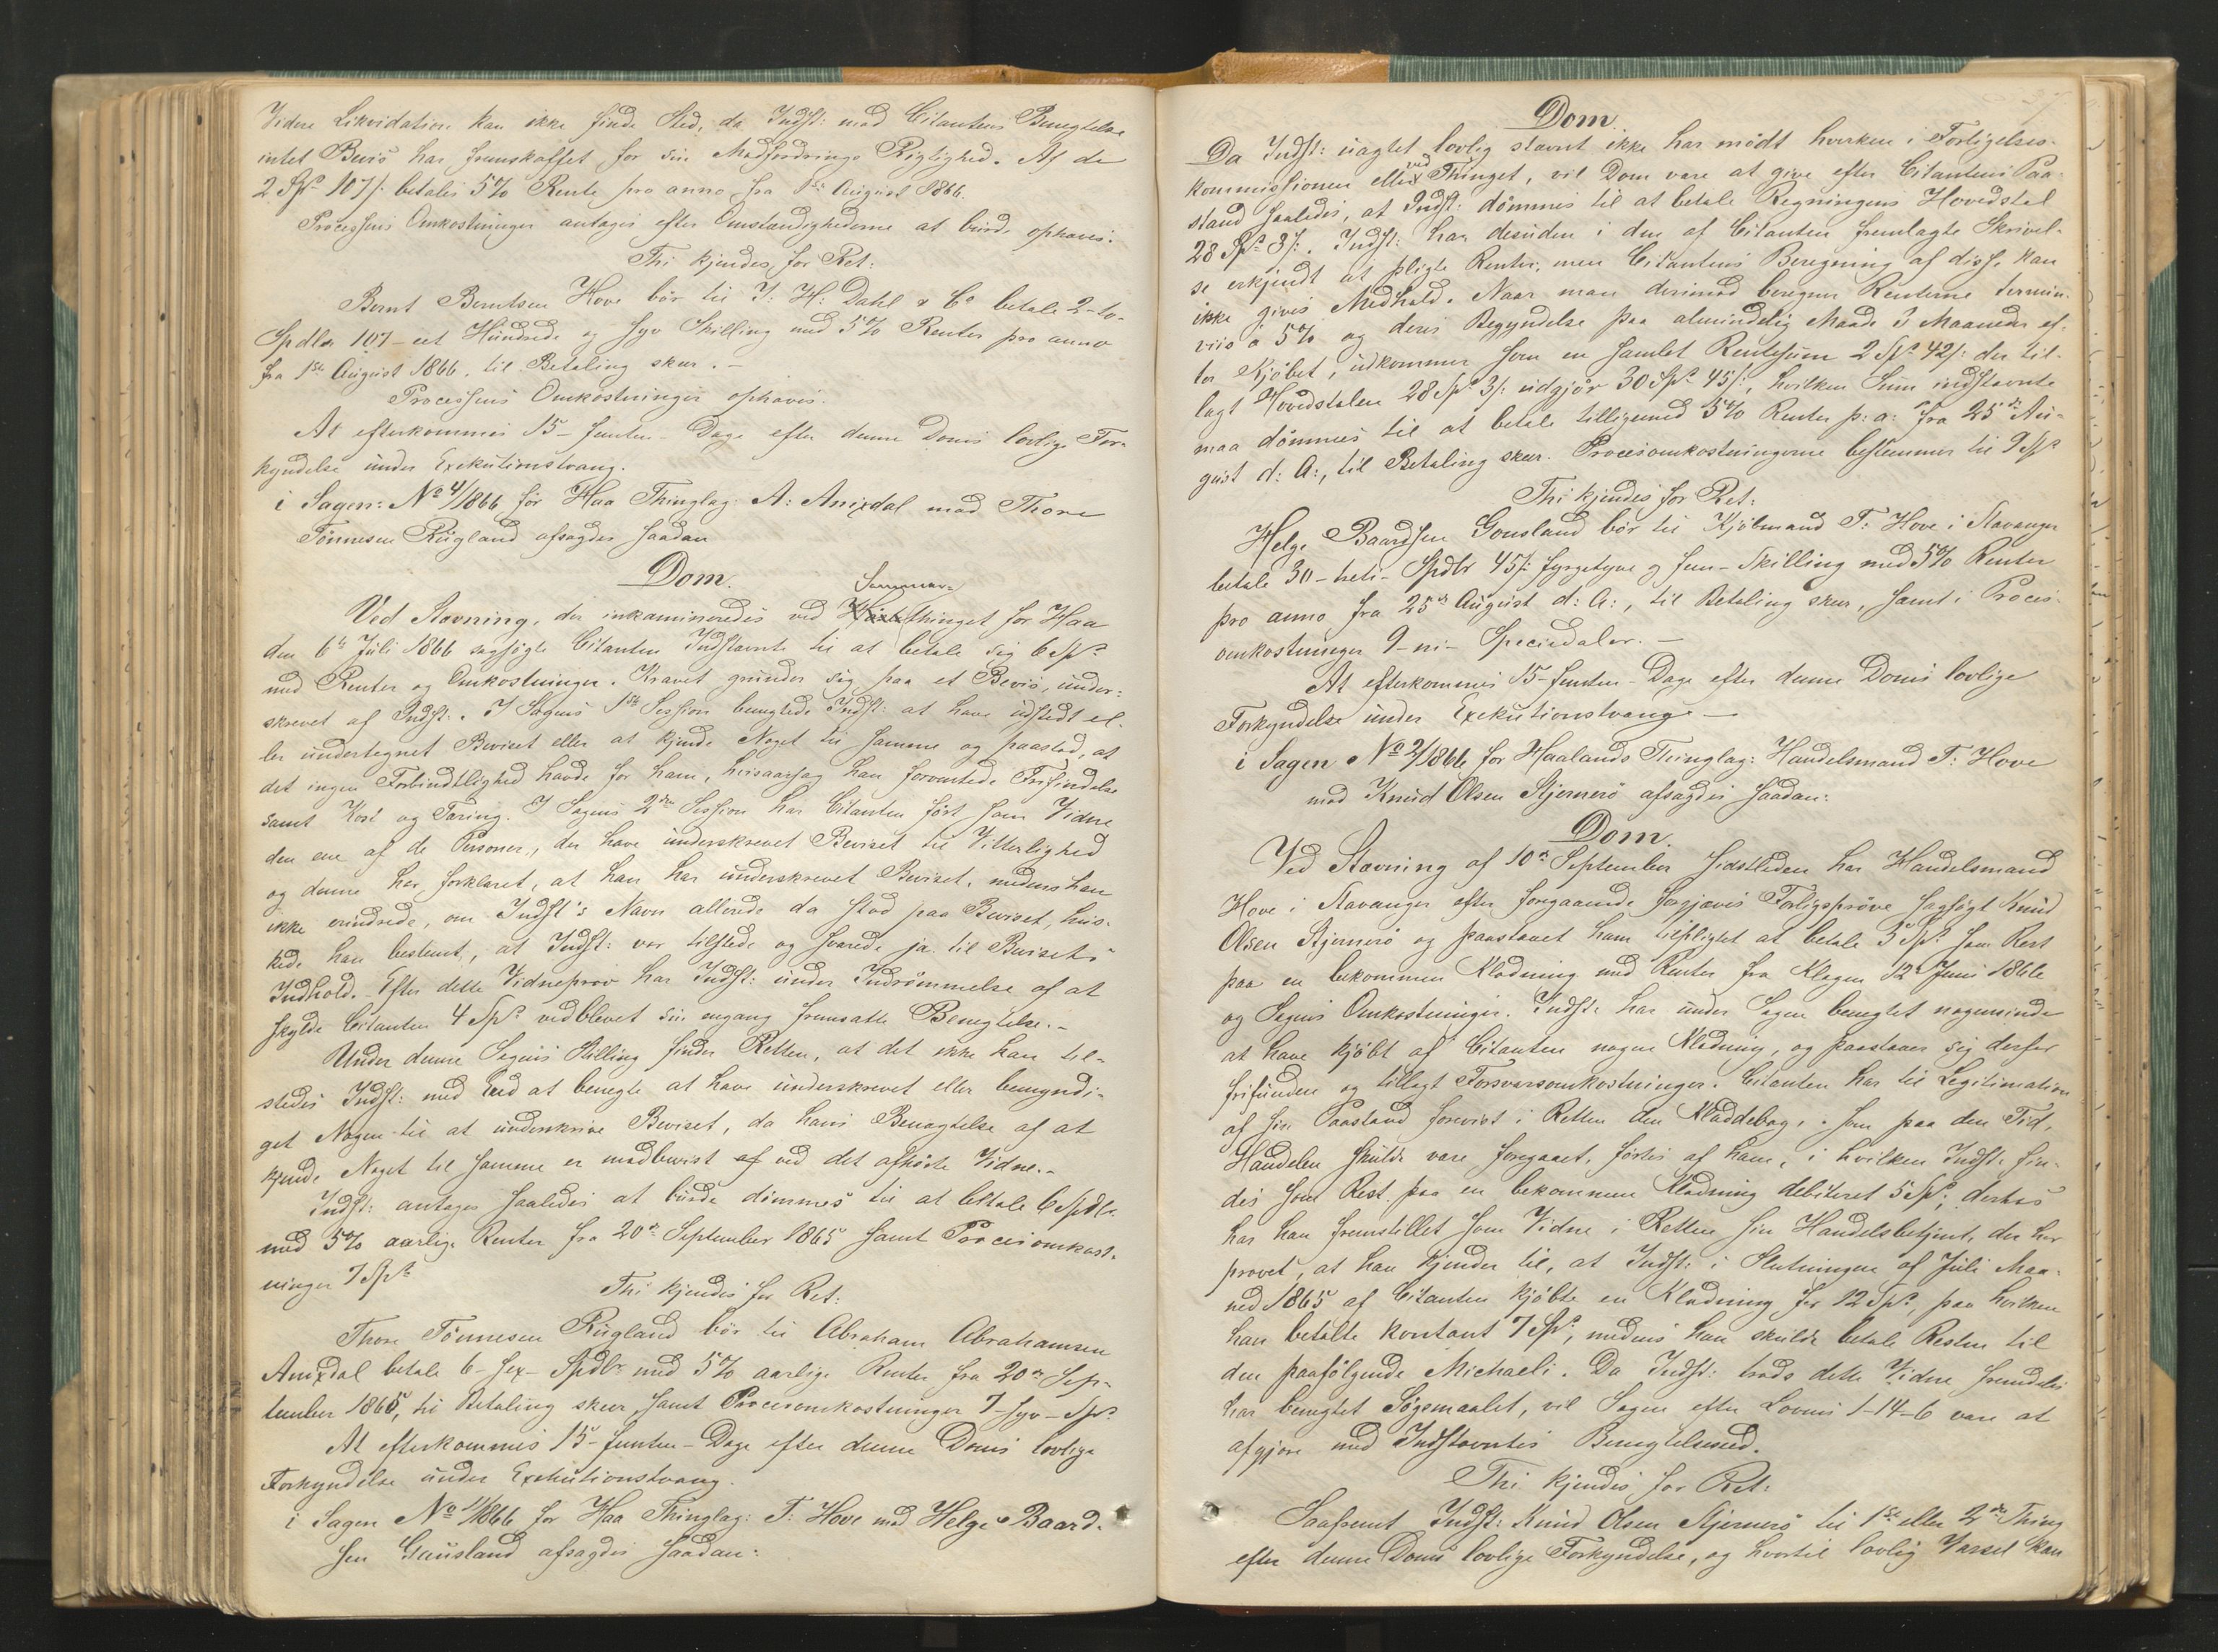 Videre Likvidation kan ikke finde Sted, da Indst: mod Citantens Benegtelse
intet Bevis har fremskaffet for sin Modfordrings Rigtighed. Af de
2 Spd 107 /: betales 5% Rente pro anno fra 1ste August 1866.
Processens Omkostninger antages efter Omstændighederne at burde ophæves.
Thi kjendes for Ret:
Bernt Berntsen Hove bør til T: H: Dahl & Co betale 2-to-
Spdlr 107- et Hundrede og syv Skilling med 5% Renter pro anno
fra 1ste August 1866, til Betaling skeer.-
Processens Omkostninger ophæves.
At efterkommes 15-femten-Dage efter denne Doms lovlige For-
kyndelse under Exekutionstvang.
i Sagen: No 4/1866 for Haa Thinglag: A: Anixdal mod Thore
Tönnesen Rügland afsagdes saadan
Dom.
Sommer-
Ved Stævning, der inkamineredes ved Høstthinget for Haa
den 6te Juli 1866 sagsøgte Citanten Indstævnte til at betale sig 6 Spd
med Renter og Omkostninger. Kravet grunder sig paa et Bevis, under-
skrevet af Indst:. I Sagens 1ste Session benegtede Indst: at have udstedt el-
ler undertegnet Beviset eller at kjende Noget til samme og paastod, at
det ingen Forbindtlighed havde for ham, hvisaarsag han forventede Frifindelse
samt Kost og Tæring. I Sagens 2den Session har Citanten ført som Vidne
den ene af de Personer, der have underskrevet Beviset til Vitterlighed
og denne har forklaret, at han har underskrevet Beviset, medens han
ikke erindrede, om Indst's Navn allerede da stod paa Beviset, hus-
kede han bestemt, at Indst: var tilstede og svarede ja til Bevisets
Indhold. Efter dette Vidneprov har Indst: under Indrømmelse af at
skylde Citanten 4 Spd vedblevet sin engang fremsatte Benegtelse.-
Under denne Sagens Stilling finder Retten, at det ikke kan til-
stedes Indst: med Eed at benegte at have underskrevet eller bemyndi-
get Nogen til at underskrive Beviset, da hans Benægtelse af at
kjende Noget til samme er modbevist af ved det afhørte Vidne.-
Indst: antages saaledes at burde dömmes til at betale 6 Spdlr.
med 5% aarlige Renter fra 20de September 1865 samt Procesomkost-
ninger 7 Spd.
Thi kjendes for Ret:
Thore Tönnesen Rügland bör til Abraham Abrahamsen
Anixdal betale 6-sex-Spdlr med 5% aarlige Renter fra 20de Sep-
tember 1865, til Betaling skeer, samt Procesomkostninger 7-syv-Spd.
At efterkommes 15-femten-Dage efter denne Doms lovlige
Forkyndelse under Exekutionstvang.
i Sagen No 11/1866 for Haa Thinglag: T: Hove mod Helge Baard-
sen Gausland afsagdes saadan:
Dom.
Da Indst: uagtet lovlig stævnt ikke har mödt hverken i Forligelses-
kommissionen eller ved Thinget, vil Dom være at give efter Citantens Paa-
stand saaledes, at Indst: dömmes til at betale Regningens Hovedstol
28 Spd 3 /:. Indst: har desuden i den af Citanten fremlagte Skrivel-
se erkjendt at pligte Renter, men Citantens Beregning af disse kan
ikke gives Medhold. Naar man derimod beregner Renterne termin-
viis à 5% og deres Begyndelse paa almindelig Maade 3 Maaneder ef-
ter Kjöbet, udkommer som en samlet Rentesum 2 Spd 42 /: der til-
lagt Hovedstolen 28 Spd 3 /: udgjör 30 Spd 45 /:, hvilken Sum indstævnte
maa dömmes til at betale tilligemed 5% Renter p: a: fra 25de Au-
gust d: A:, til Betaling skeer. Procesomkostningerne bestemmes til 9 Spd
Thi kjendes for Ret:
Helge Baardsen Gousland bör til Kjöbmand T: Hove i Stavanger
betale 30-treti-Spdlr 45 /: fyrgetyve og fem-Skilling med 5% Renter
pro anno fra 25de August d: A:, til Betaling skeer, samt i Proces-
omkostninger 9-ni-Speciedaler.-
At efterkommes 15-femten-Dage efter denne Doms lovlige
Forkyndelse under Exekutionstvang.-
i Sagen No 2/1866 for Haalands Thinglag: Handelsmand T: Hove
mod Knud Olsen Stjernerö afsagdes saadan:
Dom.
Ved Stævning af 10de September sidstleden har Handelsmand
Hove i Stavanger efter foregaaende forgjæves Forligspröve sagsögt Knud
Olsen Stjernerö og paastaaet ham tilpligtet at betale 5 Spd som Rest
paa en bekommen Klædning med Renter fra Klagen 12te Juni 1866
og Sagens Omkostninger. Indst: har under Sagen benegtet nogensinde
at have kjöbt af Citanten nogen Klædning, og paastaaer sig derfor
frifunden og tillagt Forsvarsomkostninger. Citanten har til Legitimation
af sin Paastand forevist i Retten den Kladdebog, som paa den Tid,
Handelen skulde være foregaaet, förtes af ham, i hvilken Indst: fin-
des som Rest paa en bekommen Klædning debiteret 5 Spd; derhos
har han fremstillet som Vidne i Retten sin Handelsbetjent, der har
provet, at han kjender til, at Indst: i Slutningen af Juli Maa-
ned 1865 af Citanten kjöbte en Klædning for 12 Spd, paa hvilken
han betalte kontant 7 Spd, medens han skulde betale Resten til
den paafölgende Michaeli. Da Indst: trods dette Vidne fremdeles
har benegtet Sögsmaalet, vil Sagen efter Lovens 1-14-6 være at
afgjøre med Indstævntes Benegtelseseed.
Thi kjendes for Ret:
Saafremt Indst: Knud Olsen Stjernerö til 1ste eller 2det Thing
efter denne Doms lovlige Forkyndelse, og hvortil lovlig Varsel kan